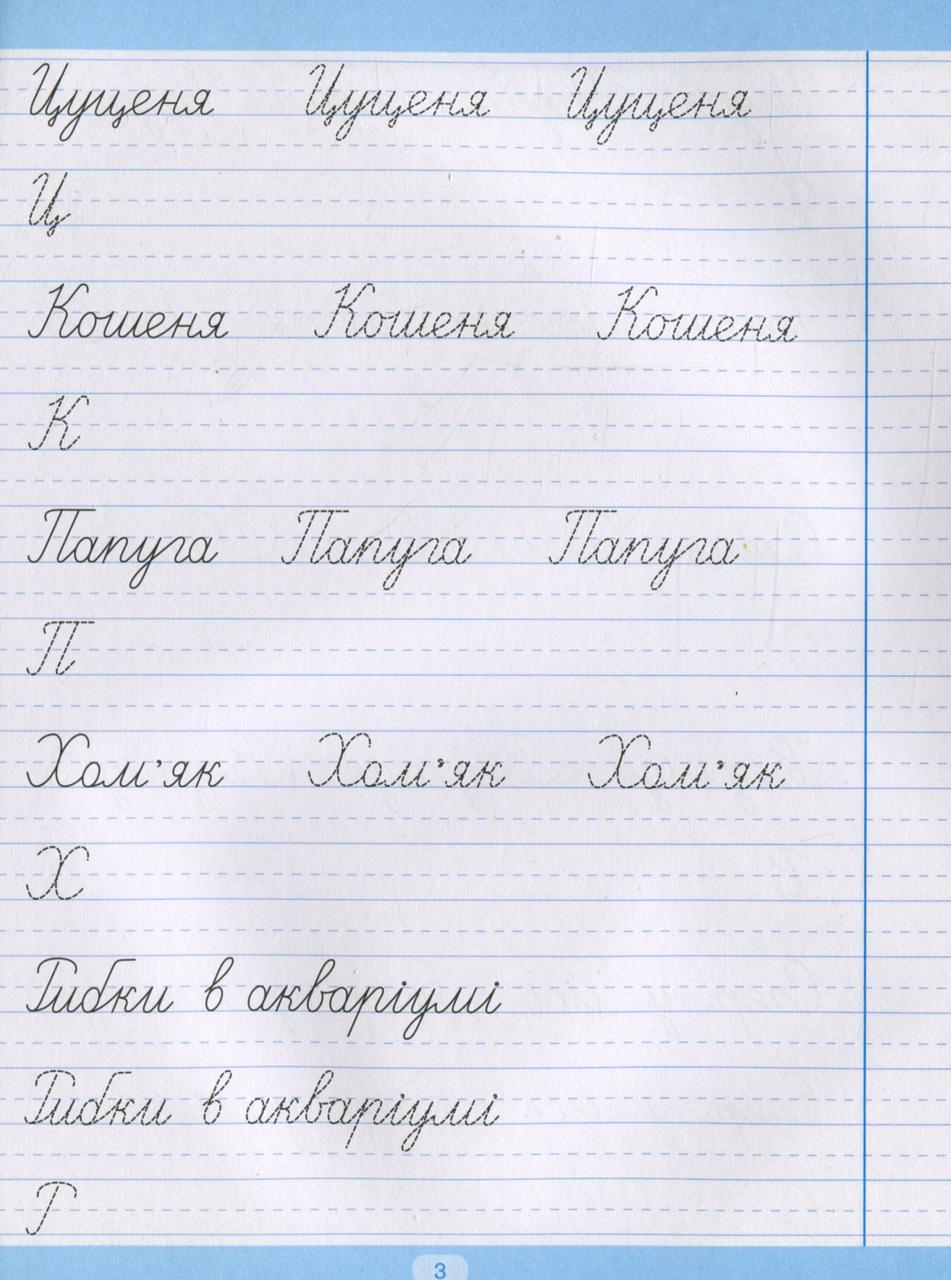 Цуценя Цуценя Цуценя
Ц
Кошеня Кошеня Кошеня
К
Папуга Папуга Папуга
П
Хом’як Хом’як Хом’як
Х
Рибки в акваріумі
Рибки в акваріумі
Р
3